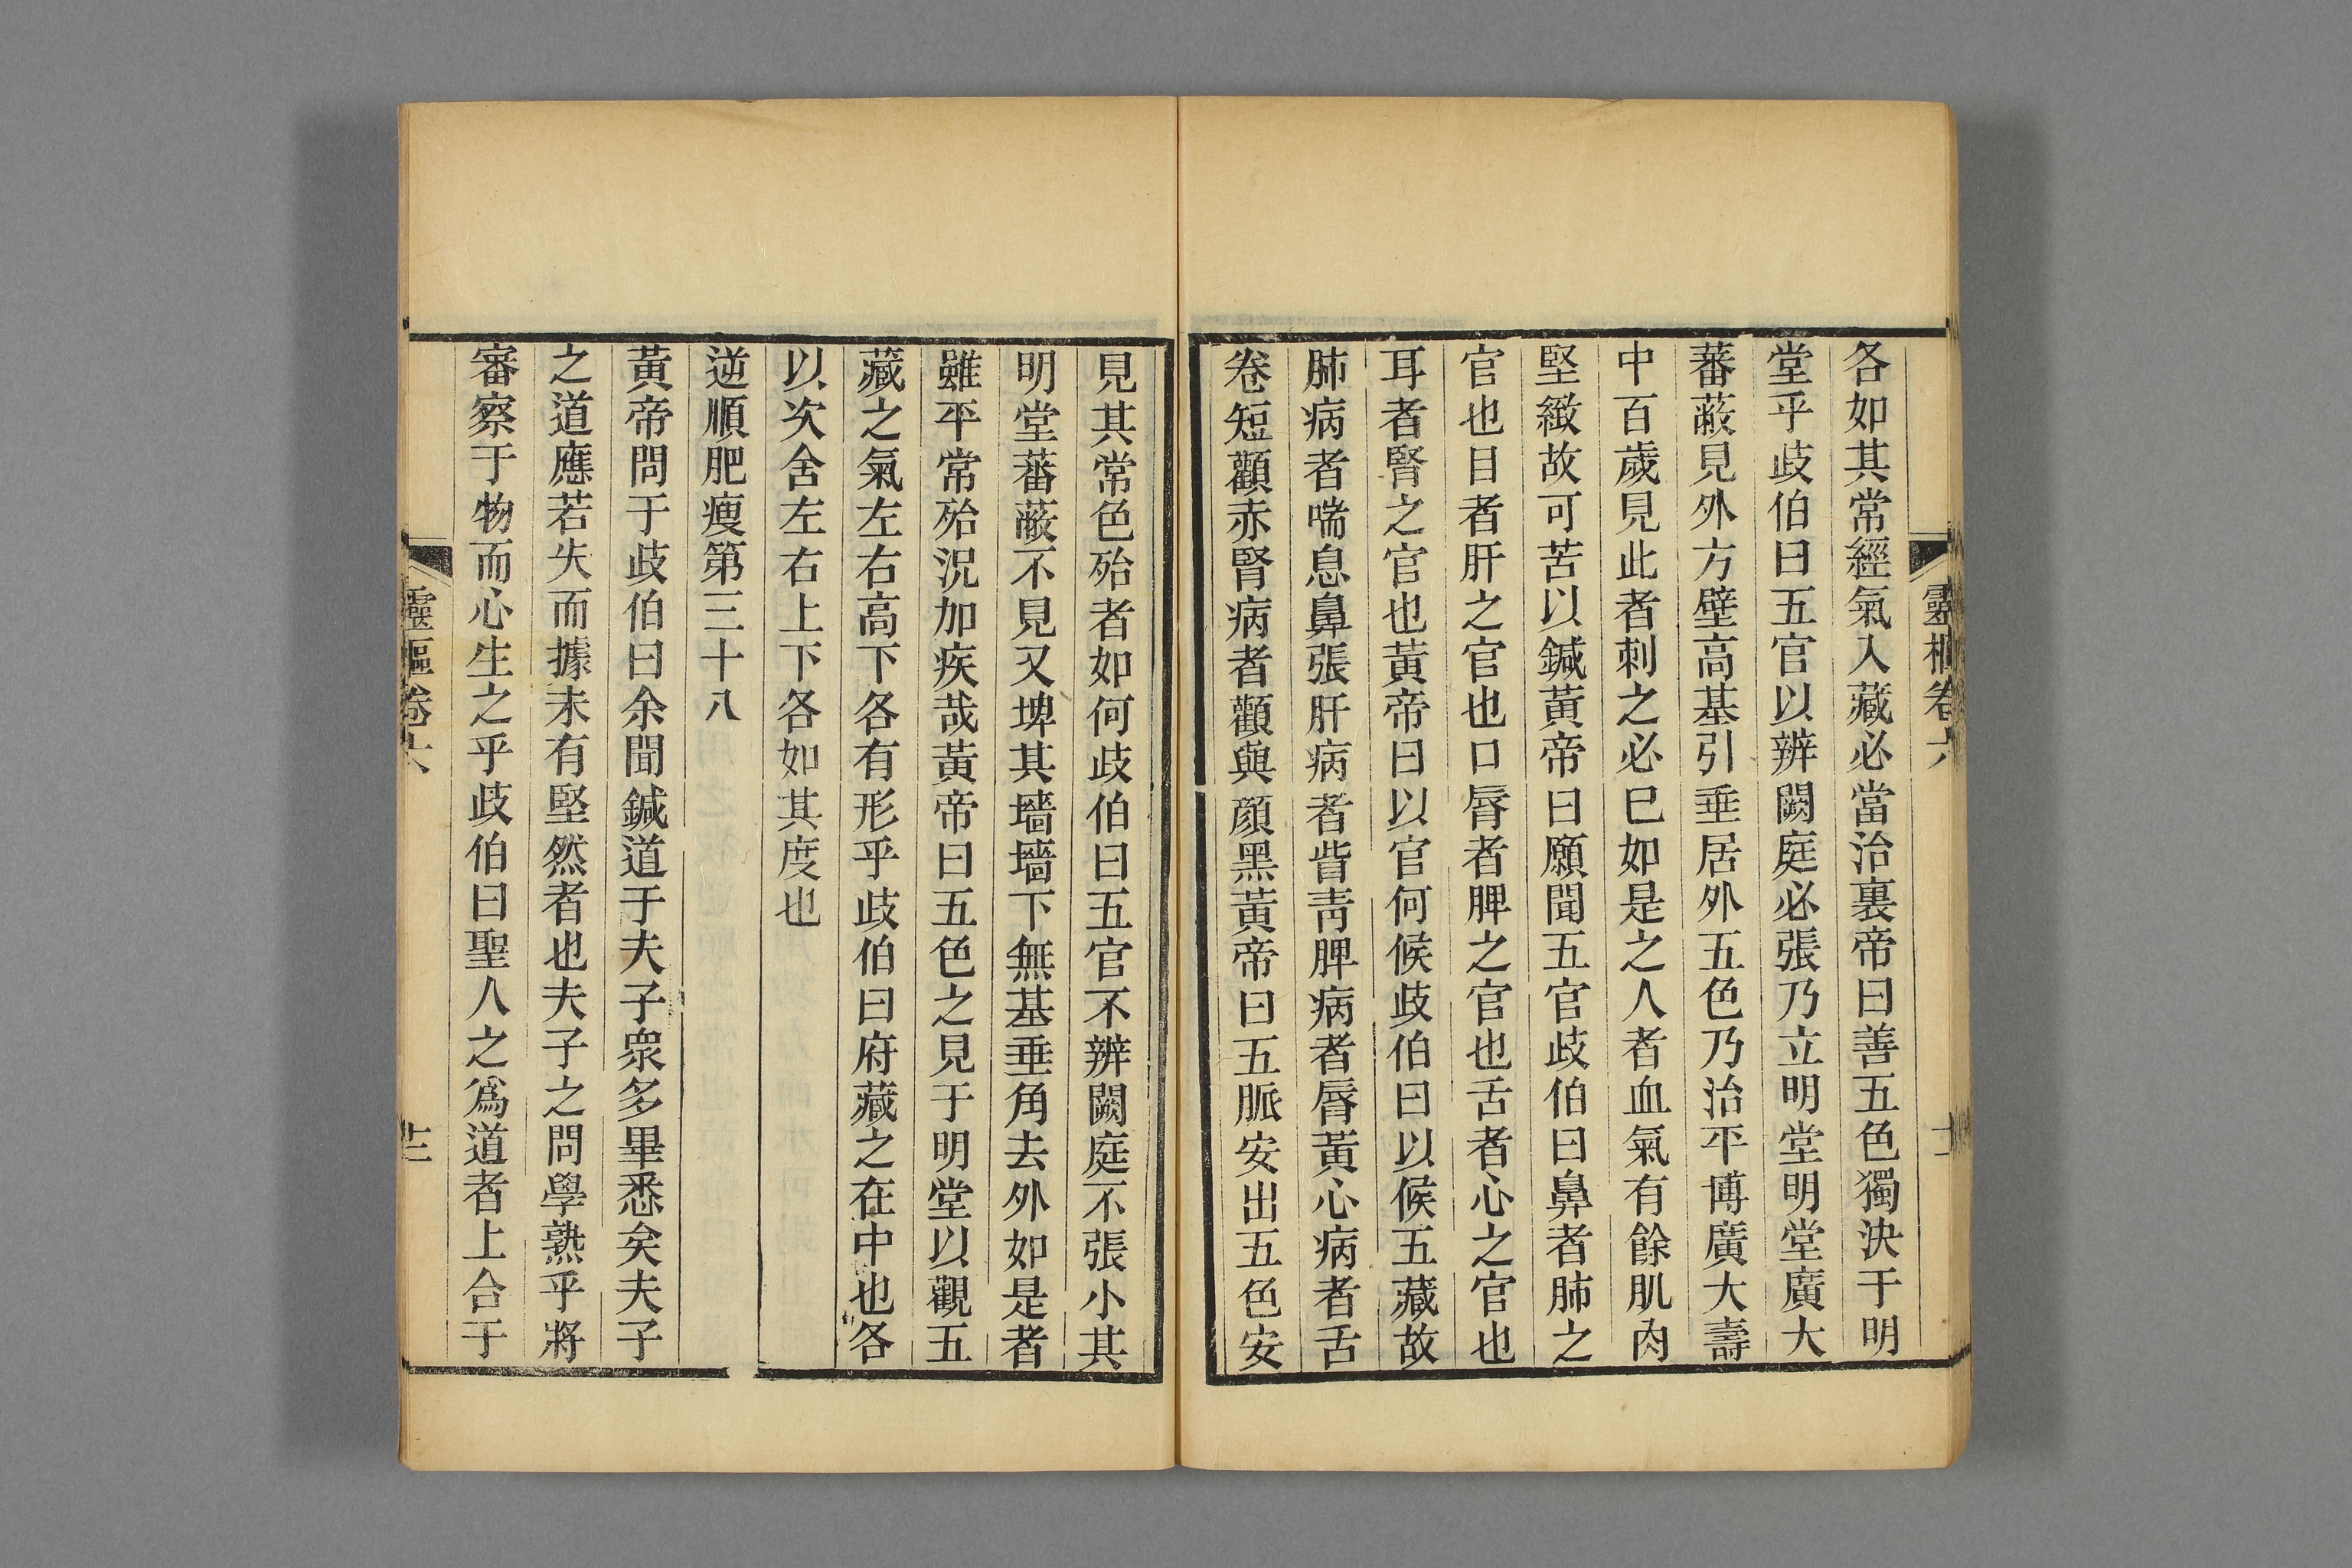 靈樞卷六
十一
各如其常經氣入藏必當治裏帝曰善五色獨決于明
堂乎歧伯曰五官以辨闕庭必張乃立明堂明堂廣大
蕃蔽見外方壁高基引垂居外五色乃治平博廣大壽
中百歲見此者刺之必已如是之人者血氣有餘肌肉
堅緻故可苦以鍼黃帝曰願聞五官歧伯曰鼻者肺之
官也目者肝之官也口脣者脾之官也舌者心之官也
耳者腎之官也黃帝曰以官何候歧伯曰以候五藏故
肺病者喘息鼻張肝病者眥靑脾病者脣黃心病者舌
卷短顴赤腎病者顴與顔黑黃帝曰五脈安出五色安
見其常色殆者如何歧伯曰五官不辨闕庭不張小其
明堂蕃蔽不見又埤其墻墻下無基垂角去外如是者
雖平常殆況加疾哉黃帝曰五色之見于明堂以觀五
藏之氣左右高下各有形乎歧伯曰府藏之在中也各
以次舍左右上下各如其度也
逆順肥瘦第三十八
黃帝問于歧伯曰余聞鍼道于夫子衆多畢悉矣夫子
之道應若失而據未有堅然者也夫子之問學熟乎將
審察于物而心生之乎歧伯曰聖人之爲道者上合于
靈樞卷六